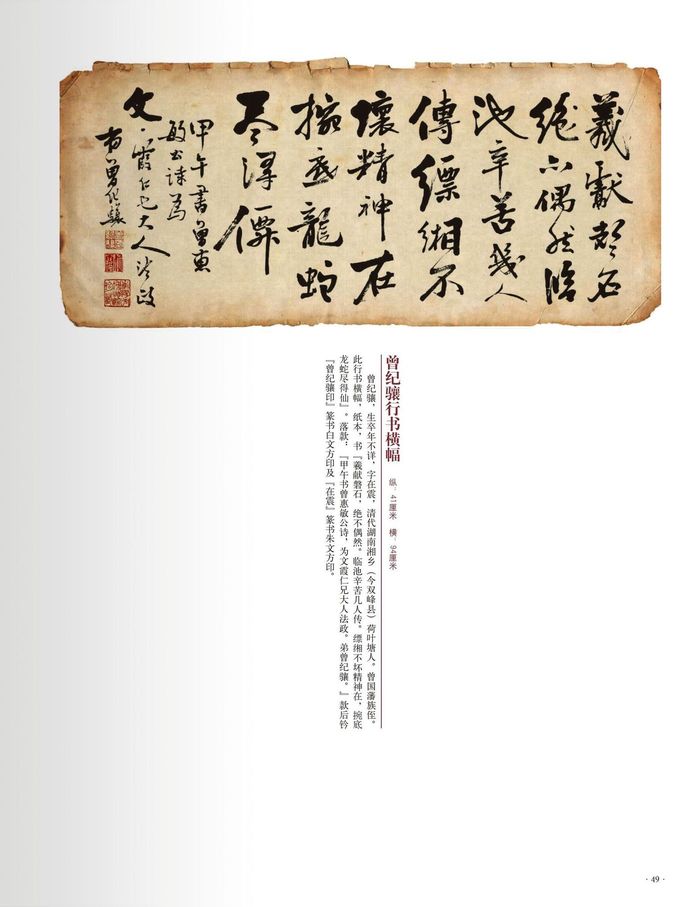 羲獻
絕不偶然臨
池辛苦幾人
傳縹緗不
壞精神在
捥底龍蛇
尽得僊
甲午書曾惠
敏公詩為
文霞仁兄大人法政
弟曾纪驤
曾纪骧行书横幅 纵：41厘米 横：94厘米
曾纪骧，生卒年不详，字在震，清代湖南湘乡（今双峰县）荷叶塘人。曾国藩族侄。
此行书横幅，纸本，书『羲献磐石，绝不偶然。临池辛苦几人传。缥缃不坏精神在，捥底
龙蛇尽得仙』。落款：『甲午书曾惠敏公诗，为文霞仁兄大人法政。弟曾纪骧。』款后钤
『曾纪骧印』篆书白文方印及『在震』篆书朱文方印。
· 49 ·